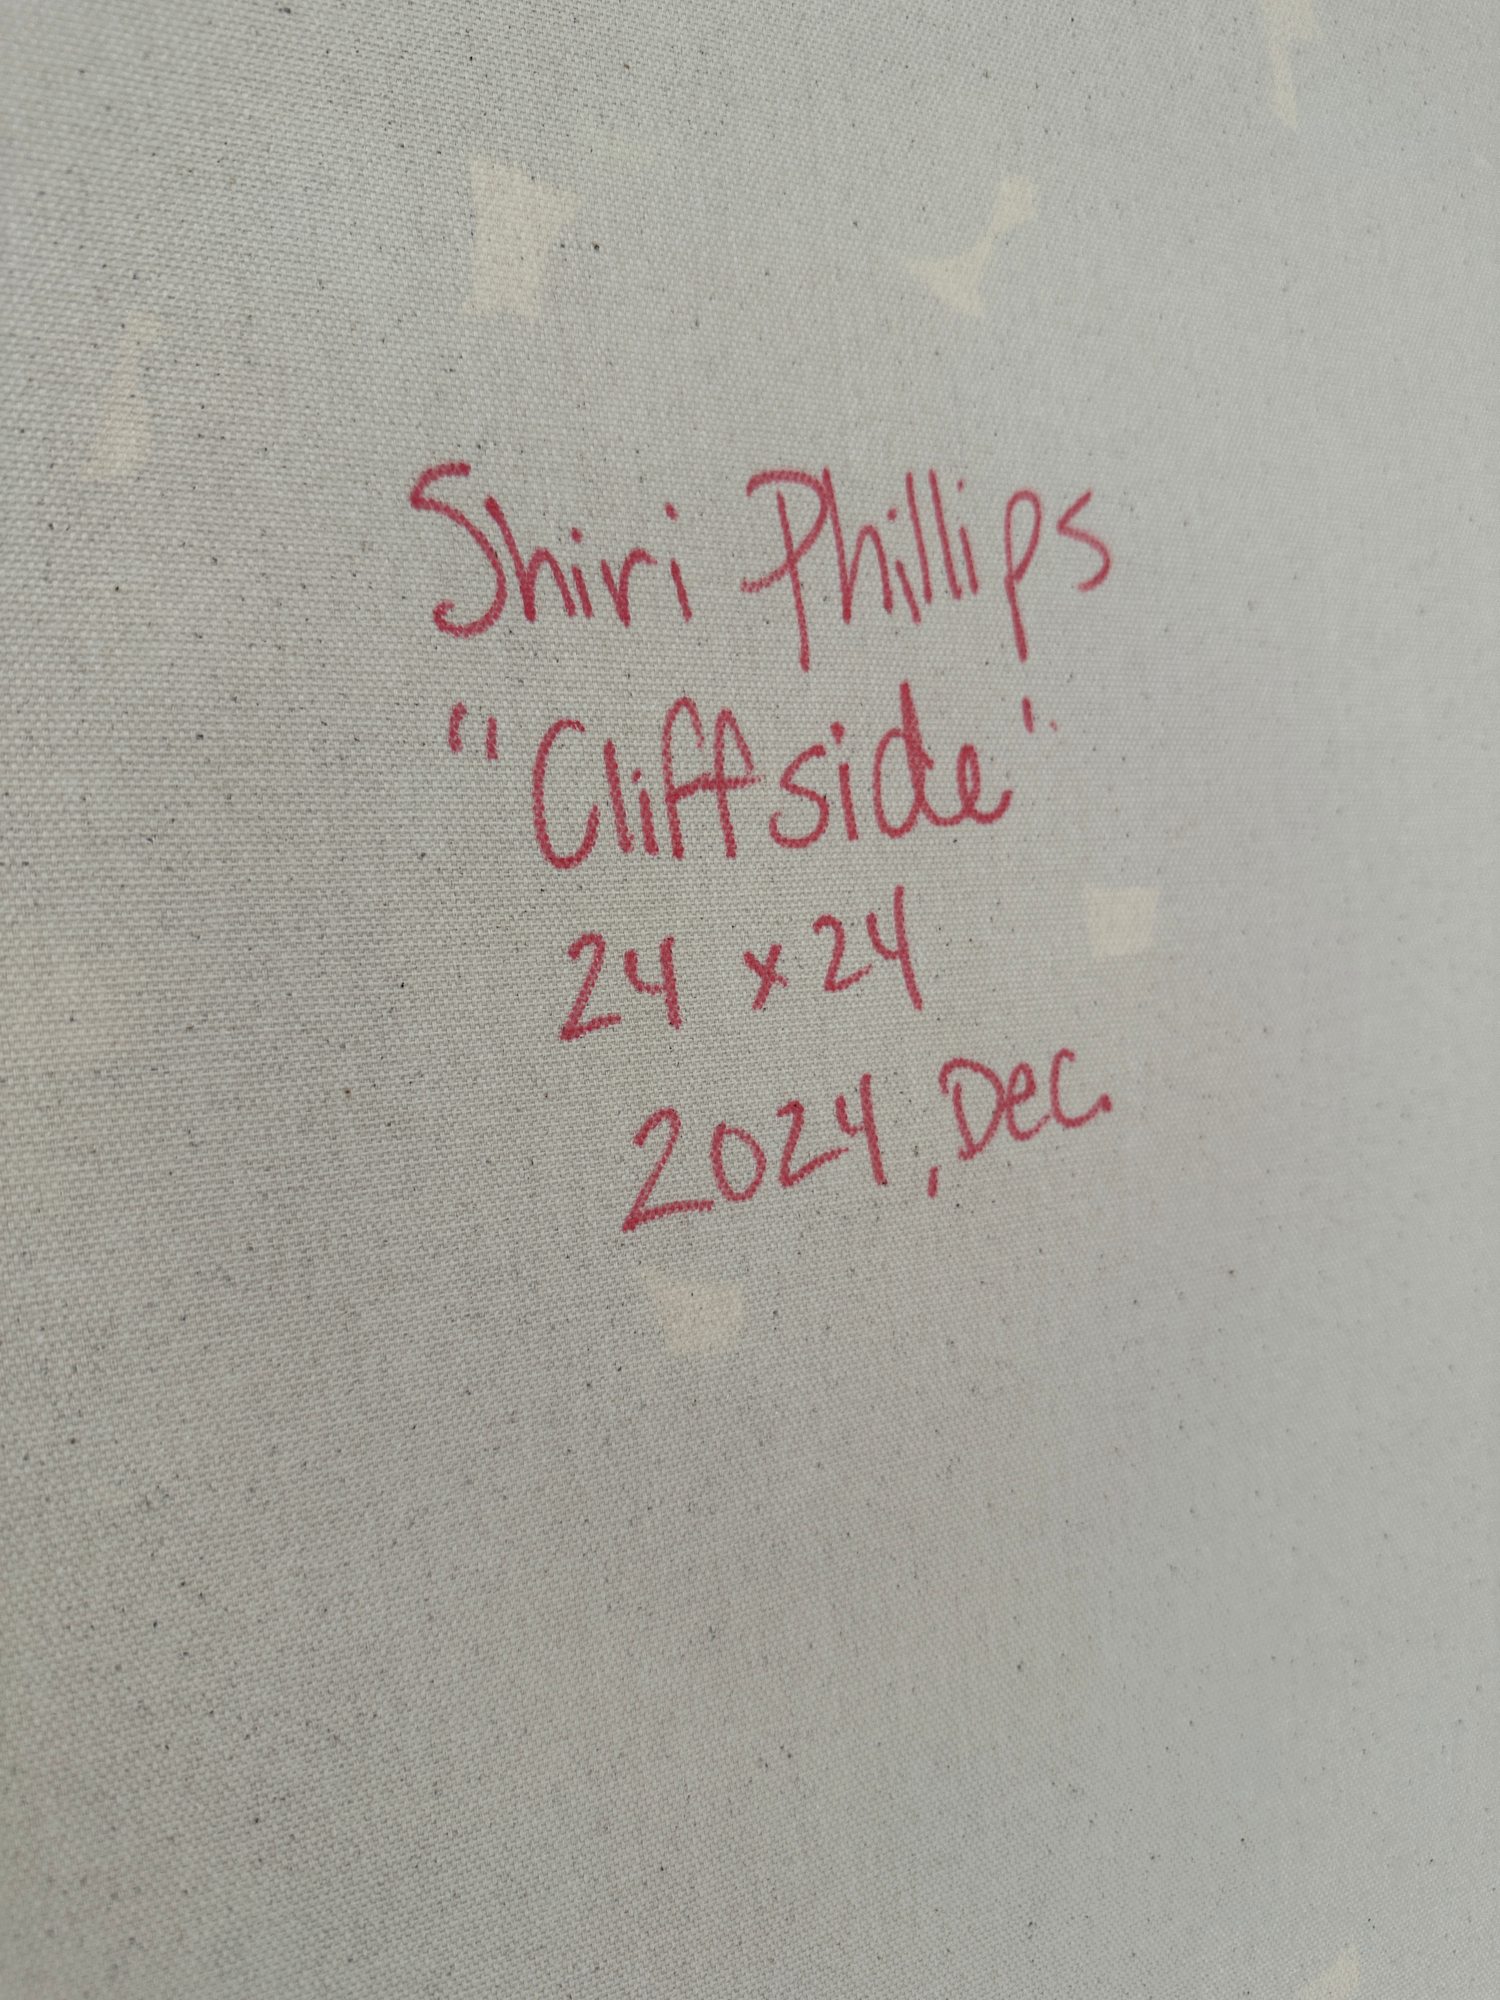 Shiri Phillips
"Cliffside"
24 x 24
2024, Dec.